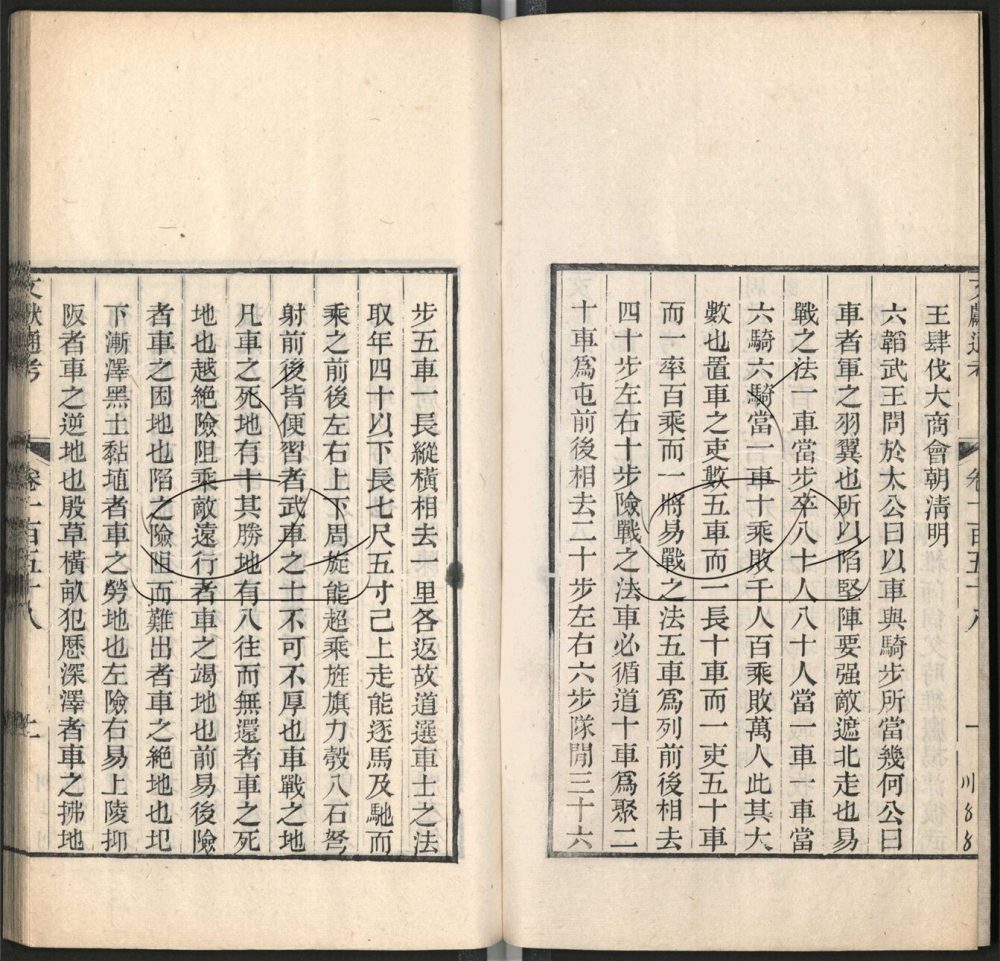 文獻通考 卷一百五十八 一 川88
王肆伐大商會朝淸明
六韜武王問於太公曰以車與騎步所當幾何公曰
車者軍之羽翼也所以陷堅陣要强敵遮北走也易
戰之法一車當步卒八十人八十人當一車一車當
六騎六騎當一車十乘敗千人百乘敗萬人此其大
數也置車之吏數五車而一長十車而一吏五十車
而一率百乘而一將易戰之法五車爲列前後相去
四十步左右十步險戰之法車必循道十車爲聚二
十車爲屯前後相去二十步左右六步隊閒三十六
步五車一長縱橫相去一里各返故道選車士之法
取年四十以下長七尺五寸己上走能逐馬及馳而
乘之前後左右上下周旋能超乘旌旗力彀八石弩
射前後皆便習者武車之士不可不厚也車戰之地
凡車之死地有十其勝地有八往而無還者車之死
地也越絕險阻乘敵遠行者車之竭地也前易後險
者車之困地也陷之險阻而難出者車之絕地也圯
下漸澤黑土黏埴者車之勞地也左險右易上陵抑
阪者車之逆地也殷草橫畝犯歷深澤者車之拂地
文獻通考 卷一百五十八